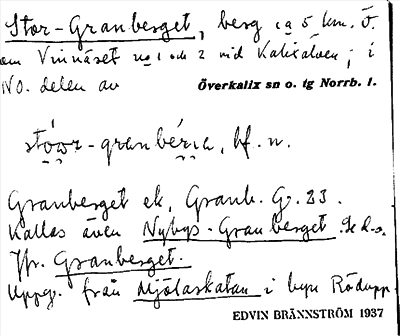 Stor-Granberget, berg ca 5 km. Ö.
om Vinnäset no 1 och 2 vid Kalixälven; i
NO. delen av Överkalix sn o. tg Norrb. l.
granbérıa, bf. n.
Granberget ek, Granb. Gr. 23.
Kallas även Nybys-Granberget. Se d.o.
Jfr. Granberget.
Uppg. från Mjölaskatan i byn Rödupp.
EDVIN BRÄNNSTRÖM 1937